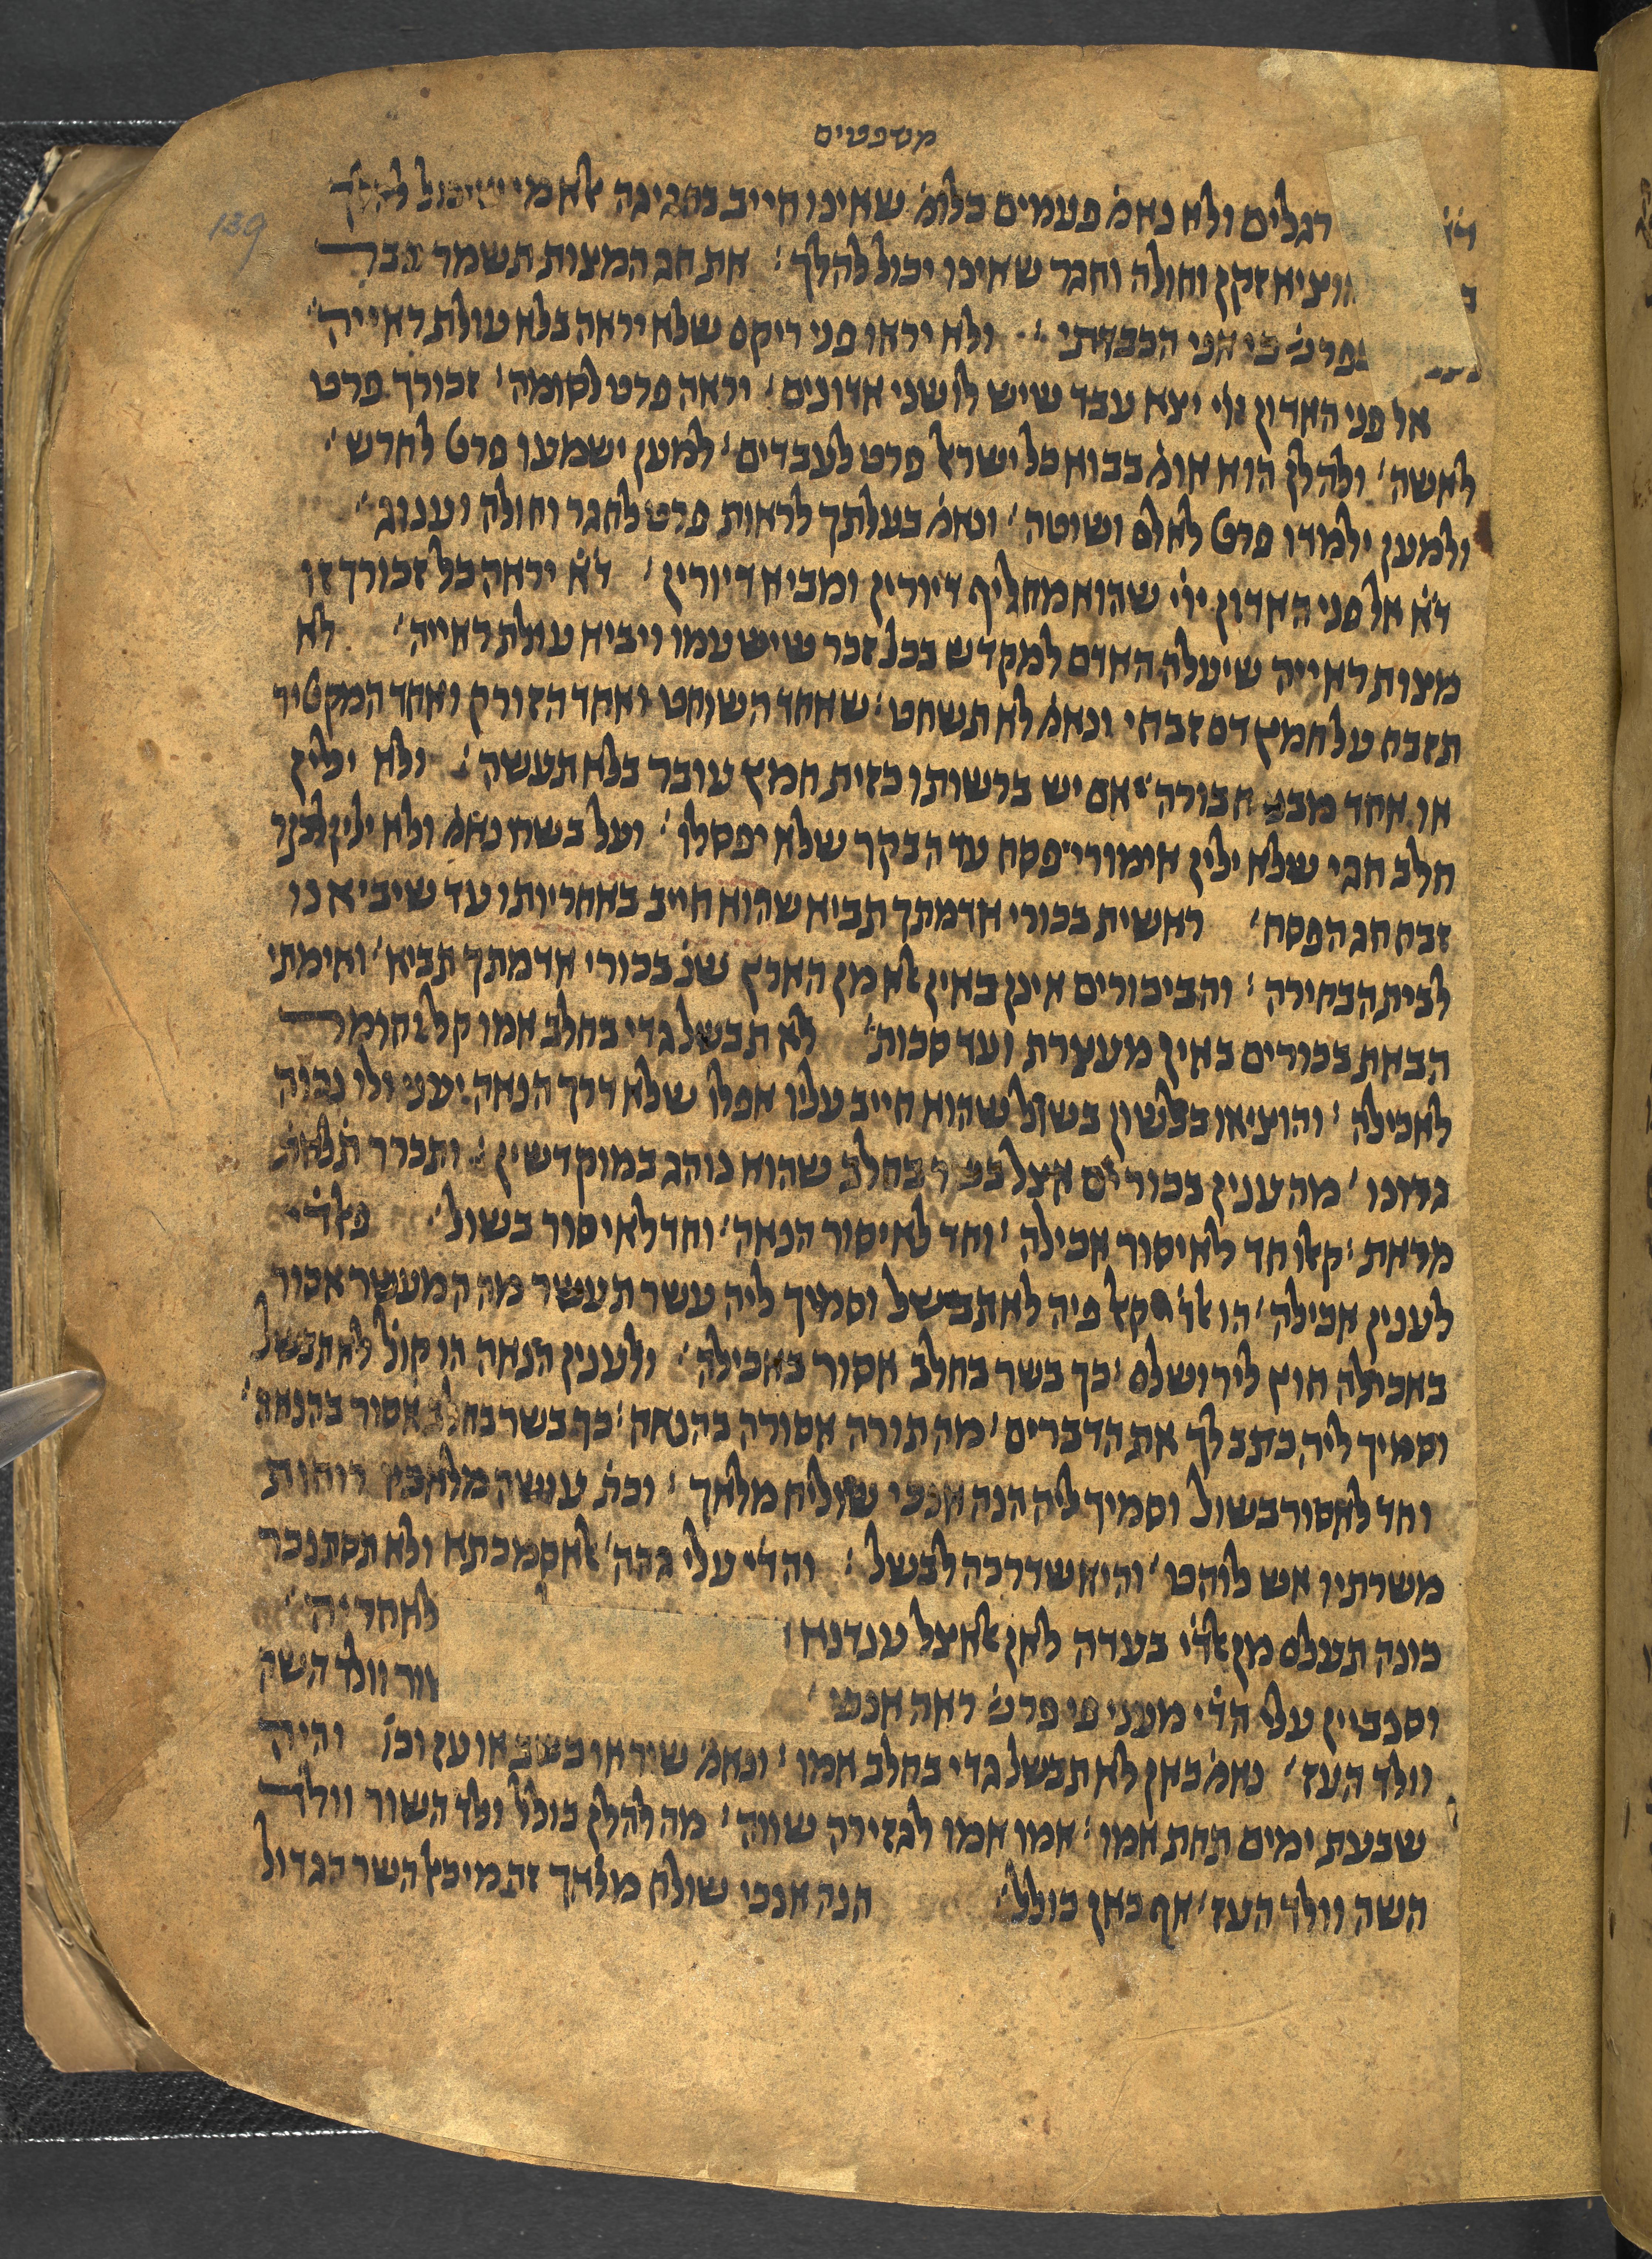 משפטים
139
רגלים ולא נאמ׳ פעמים בלומ׳ שאינו חייב בחגיגה אלא מי שיכול להלך
מוציא זקן וחולה וחגר שאינו יכול להלך׃ את חג המצות תשמר
בפרש׳ בי אני הכבדתי׃ ולא יראו פני ריקם שלא יראה בלא עולת ראייה׳
אל פני האדון ייי יצא עבד שיש לו שני אדונים׳ יראה פרט לסומה׳ זכורך פרט
לאשה׳ ולהלן הוא אומ׳ בבוא כל ישראל פרט לעבדים׳ למען ישמעו פרט לחרש׳
ולמען ילמדו פרט לאלם ושוטה׳ ונאמ׳ בעלתך לראות פרט לחגר וחולה וענוג׳
ד׳א׳ אל פני האדון ייי שהוא מחליף דיורין ומביא דיורין׳ ד׳א׳ יראה כל זכורך זו
מצות ראייה שיעלה האדם למקדש בכל זכר שיש עמו ויביא עולת ראייה׳ לא
תזבח על חמץ דם זבחי ונאמ׳ לא תשחט׃ שאחד השוחט ואחד הזורק ואחד המקטיר
או אחד מבני חבורה אם יש ברשותו כזית חמץ עובר בלא תעשה׃ ולא ילין
חלב חגי שלא ילין אימורי פסח עד הבקר שלא יפסלו׳ ועל בשרו נאמ׳ ולא ילין לבקר
זבח חג הפסח׳ ראשית בכורי אדמתך תביא שהוא חייב באחריותו עד שיביאנו
לבית הבחירה׃ והביכורים אינן באין אלא מן הארץ שנ׳ בכורי אדמתך תביא׳ ואימתי
הבאת בכורים באין מעצרת ועד סכות׳ לא תבשל גדי בחלב אמו קל וחומר
לאכילה׃ והוציאו בלשון בשול שהוא חייב עליו אפלו שלא דרך הנאה יעני ולו נכוה
גרונו׳ מה ענין בכורים אצל בשר בחלב שהוא נוהג במוקדשין׃ ותכרר תלאת
מראת׃ קאלו חד לאיסור אכילה׳ וחד לאיסור הנאה׳ וחד לאיסור בשול׳ פאלדי
לענין אכילה׳ הו אלדי קאל פיה לא תבשל וסמיך ליה עשר תעשר מה המעשר אסור
באכילה חוץ לירושלם׃ כך בשר בחלב אסור באכילה׳ ולענין הנאה הו קול לא תבשל
וסמיך ליה כתב לך את הדברים׳ מה תורה אסורה בהנאה׃ כך בשר בחלב אסור בהנאה׳
וחד לאסור בשול וסמיך ליה הנה אנכי שולח מלאך׃ וכת׳ עושה מלאכיו רוחות
משרתיו אש לוהט׳ והוא שדרכה לבשל׃ והדי עלי גהה׳ לאסמכתא ולא תסתנכר
כונה תעלם מן אלדי בעדה לאן אלאצל ענדנא לאחריה׳
וסנביין עלי הדי מעני פי פרש׳ ראה אנכי׳ שור וולד השה
וולד העז׳ נאמ׳ כאן לא תבשל גדי בחלב אמו׃ ונאמ׳ שור או כשב או עז וכו׳ והיה
שבעת ימים תחת אמו׃ אמו אמו לגזירה שווה׳ מה להלן כולל ולד השור וולד
השה וולד העז׳ אף כאן כולל׳ הנה אנכי שולח מלאך זה מיכאל השר הגדול